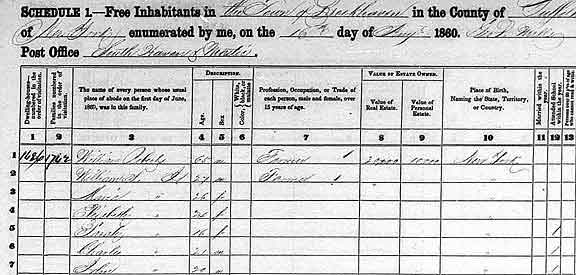 SCHEDULE 1.—Free Inhabitants in the Town of Brookhaven in the County of Suffolk
of New York enumerated by me, on the 16th day of Aug 1860.
Post Office South Haven & Mastic
Dwelling-houses—numbered in the order of visitation.
Families numbered in the order of visitation.
The name of every person whose usual place of abode on the first day of June, 1860, was in this family.
DESCRIPTION.
Age.
Sex
Color
Profession, Occupation, or Trade of each person, male and female, over 15 years of age.
VALUE OF ESTATE OWNED.
Value of Real Estate.
Value of Personal Estate.
Place of Birth, Naming the State, Territory, or Country.
Married within the year.
Attended School within the year.
1 2 3 4 5 6 7 8 9 10 11 12
1 William 65 m Farmer 1 20000 New York
2 William 27 m Farmer 1 "
3 Maria " 26 f "
4 Elizabeth " f "
5 " 16 f " 1
6 Charles " 21 m " 1
7 John " 20 m " 1